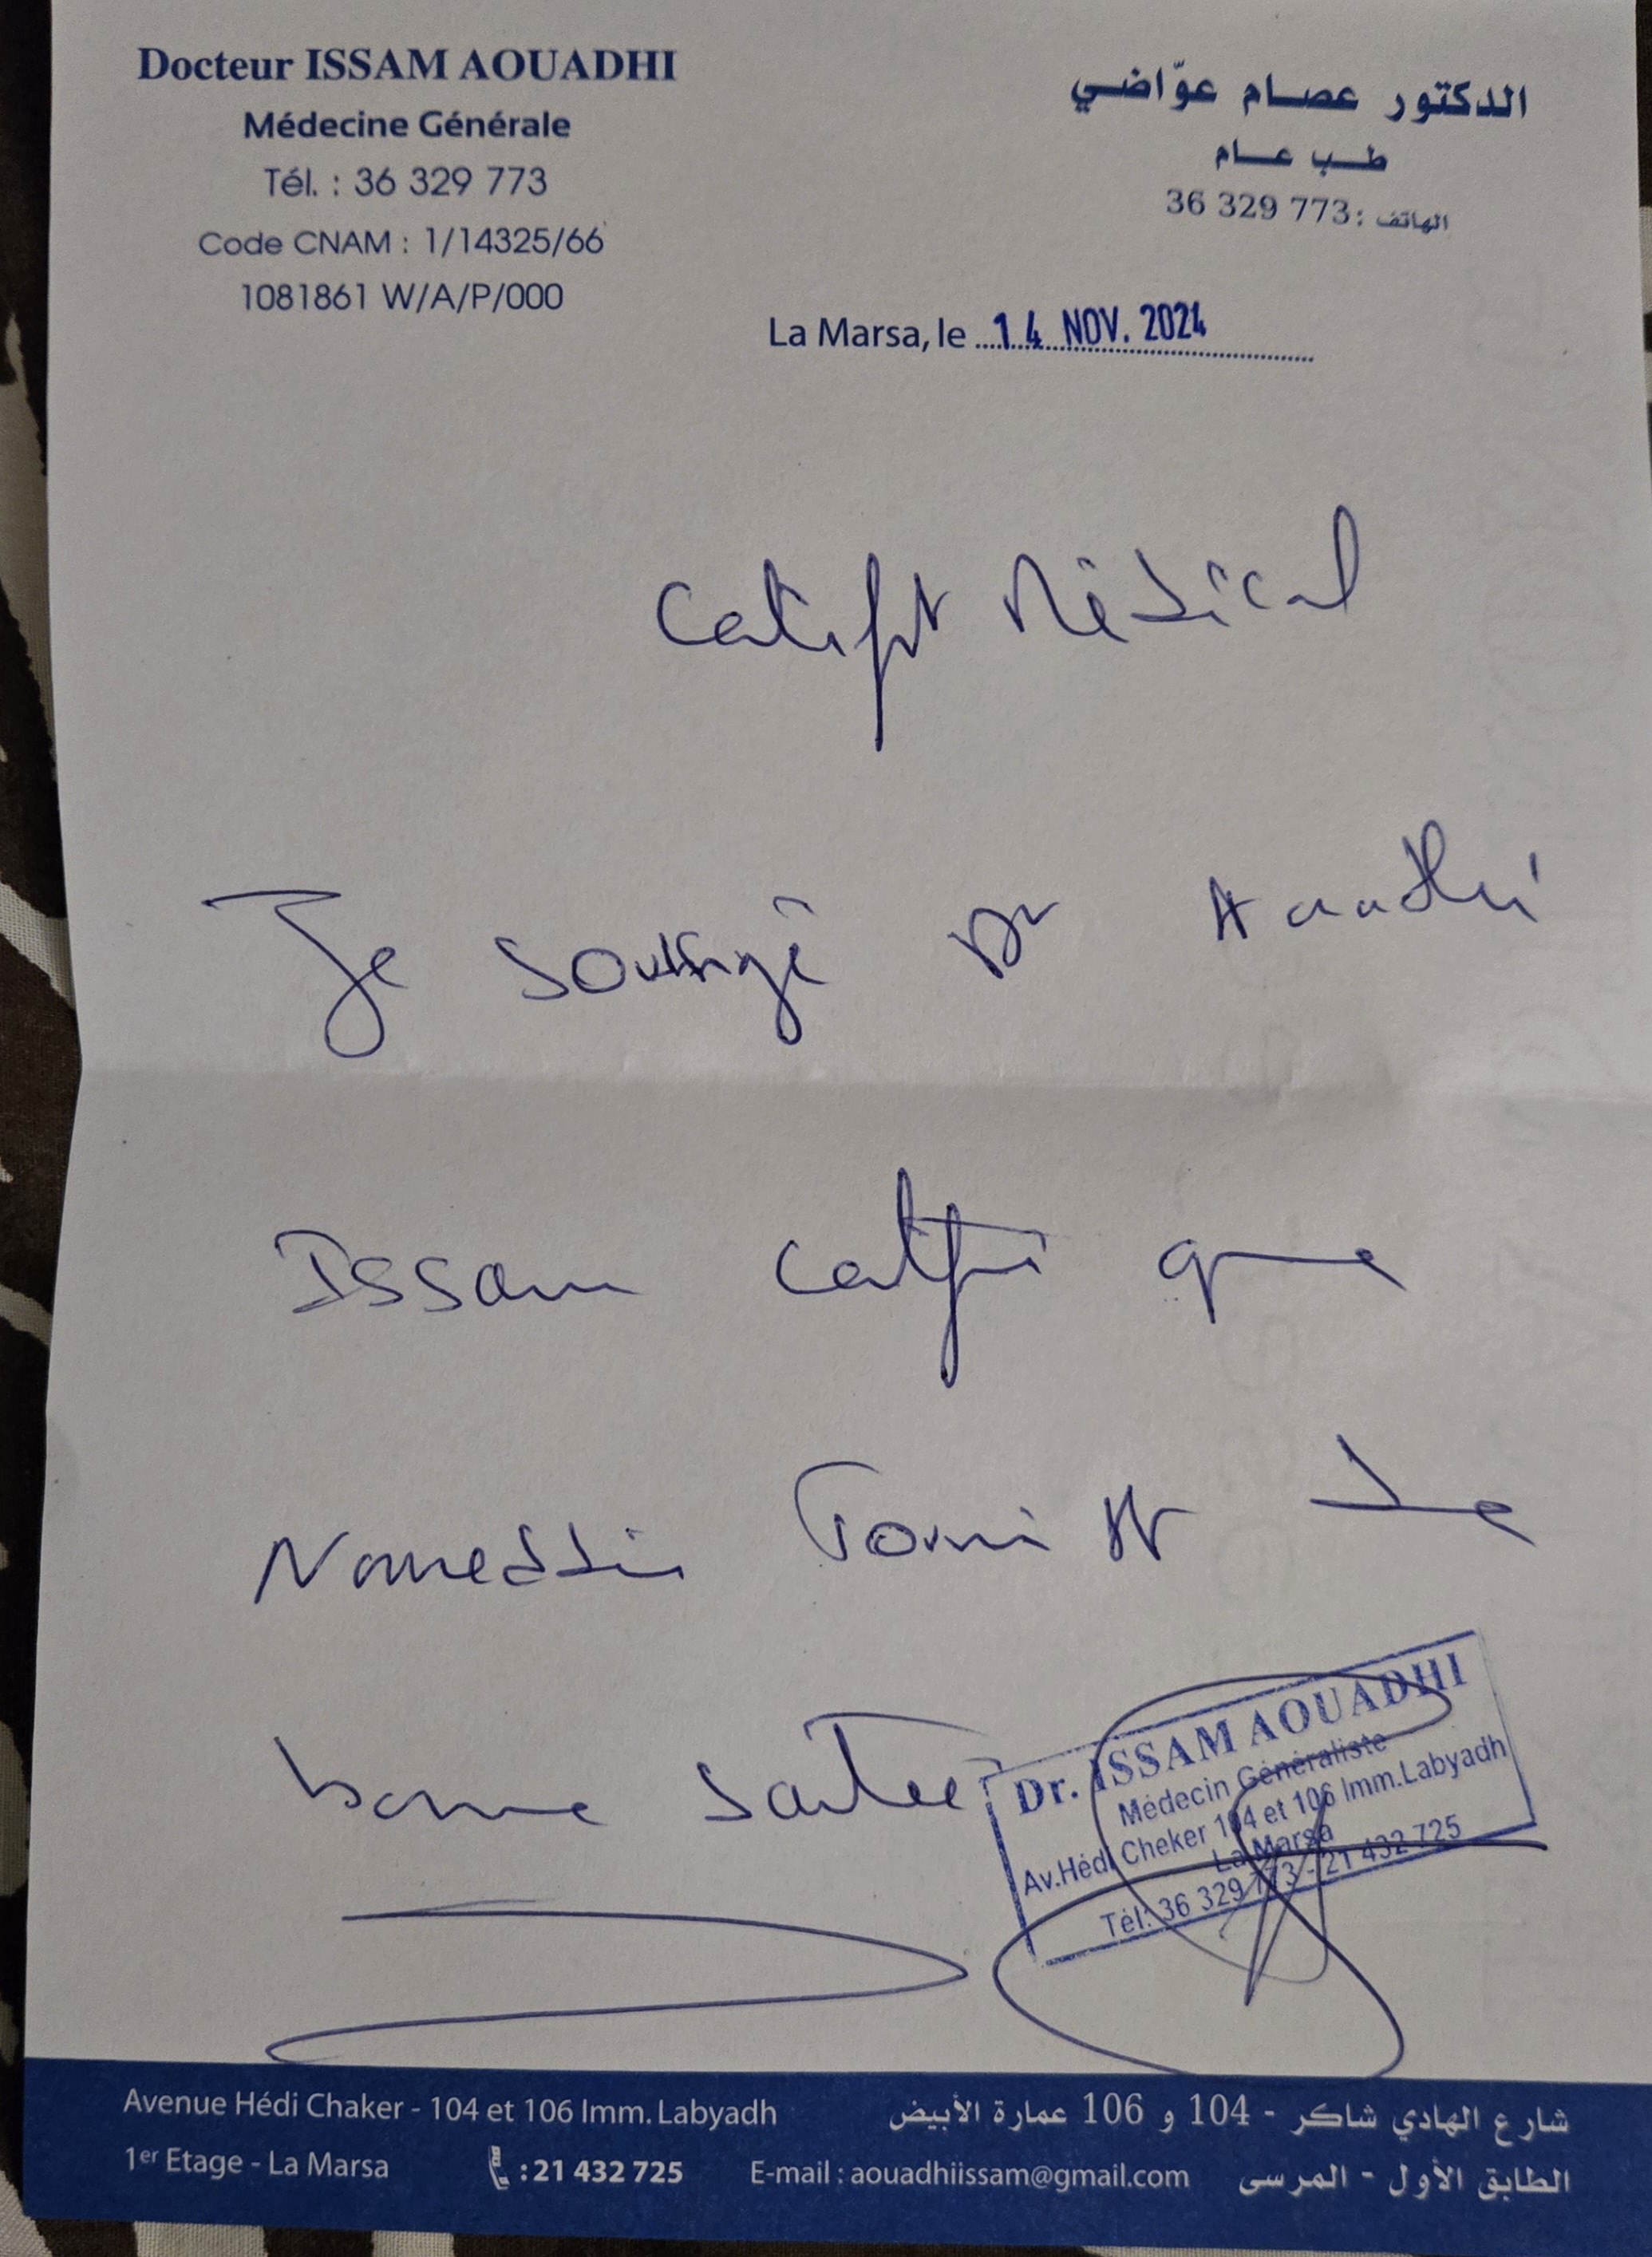 Docteur ISSAM AOUADHI
Médecine Générale
Tél. : 36 329 773
Code CNAM : 1/14325/66
1081861 W/A/P/000
الدكتور عصام عوّاضي
طب عام
الهاتف : 36 329 773
La Marsa, le 14 NOV. 2024
Médical
Je soussigné Dr Aouadhi
Issam certifie que
de
bonne santé
Dr. ISSAM AOUADHI
Médecin Généraliste
Av.Hédi Cheker 104 et 106 Imm.Labyadh
La Marsa
Tél: 36 329 773 - 21 432 725
Avenue Hédi Chaker - 104 et 106 Imm. Labyadh
1er Etage - La Marsa
: 21 432 725
E-mail : aouadhiissam@gmail.com
شارع الهادي شاكر - 104 و 106 عمارة الأبيض
الطابق الأول - المرسى